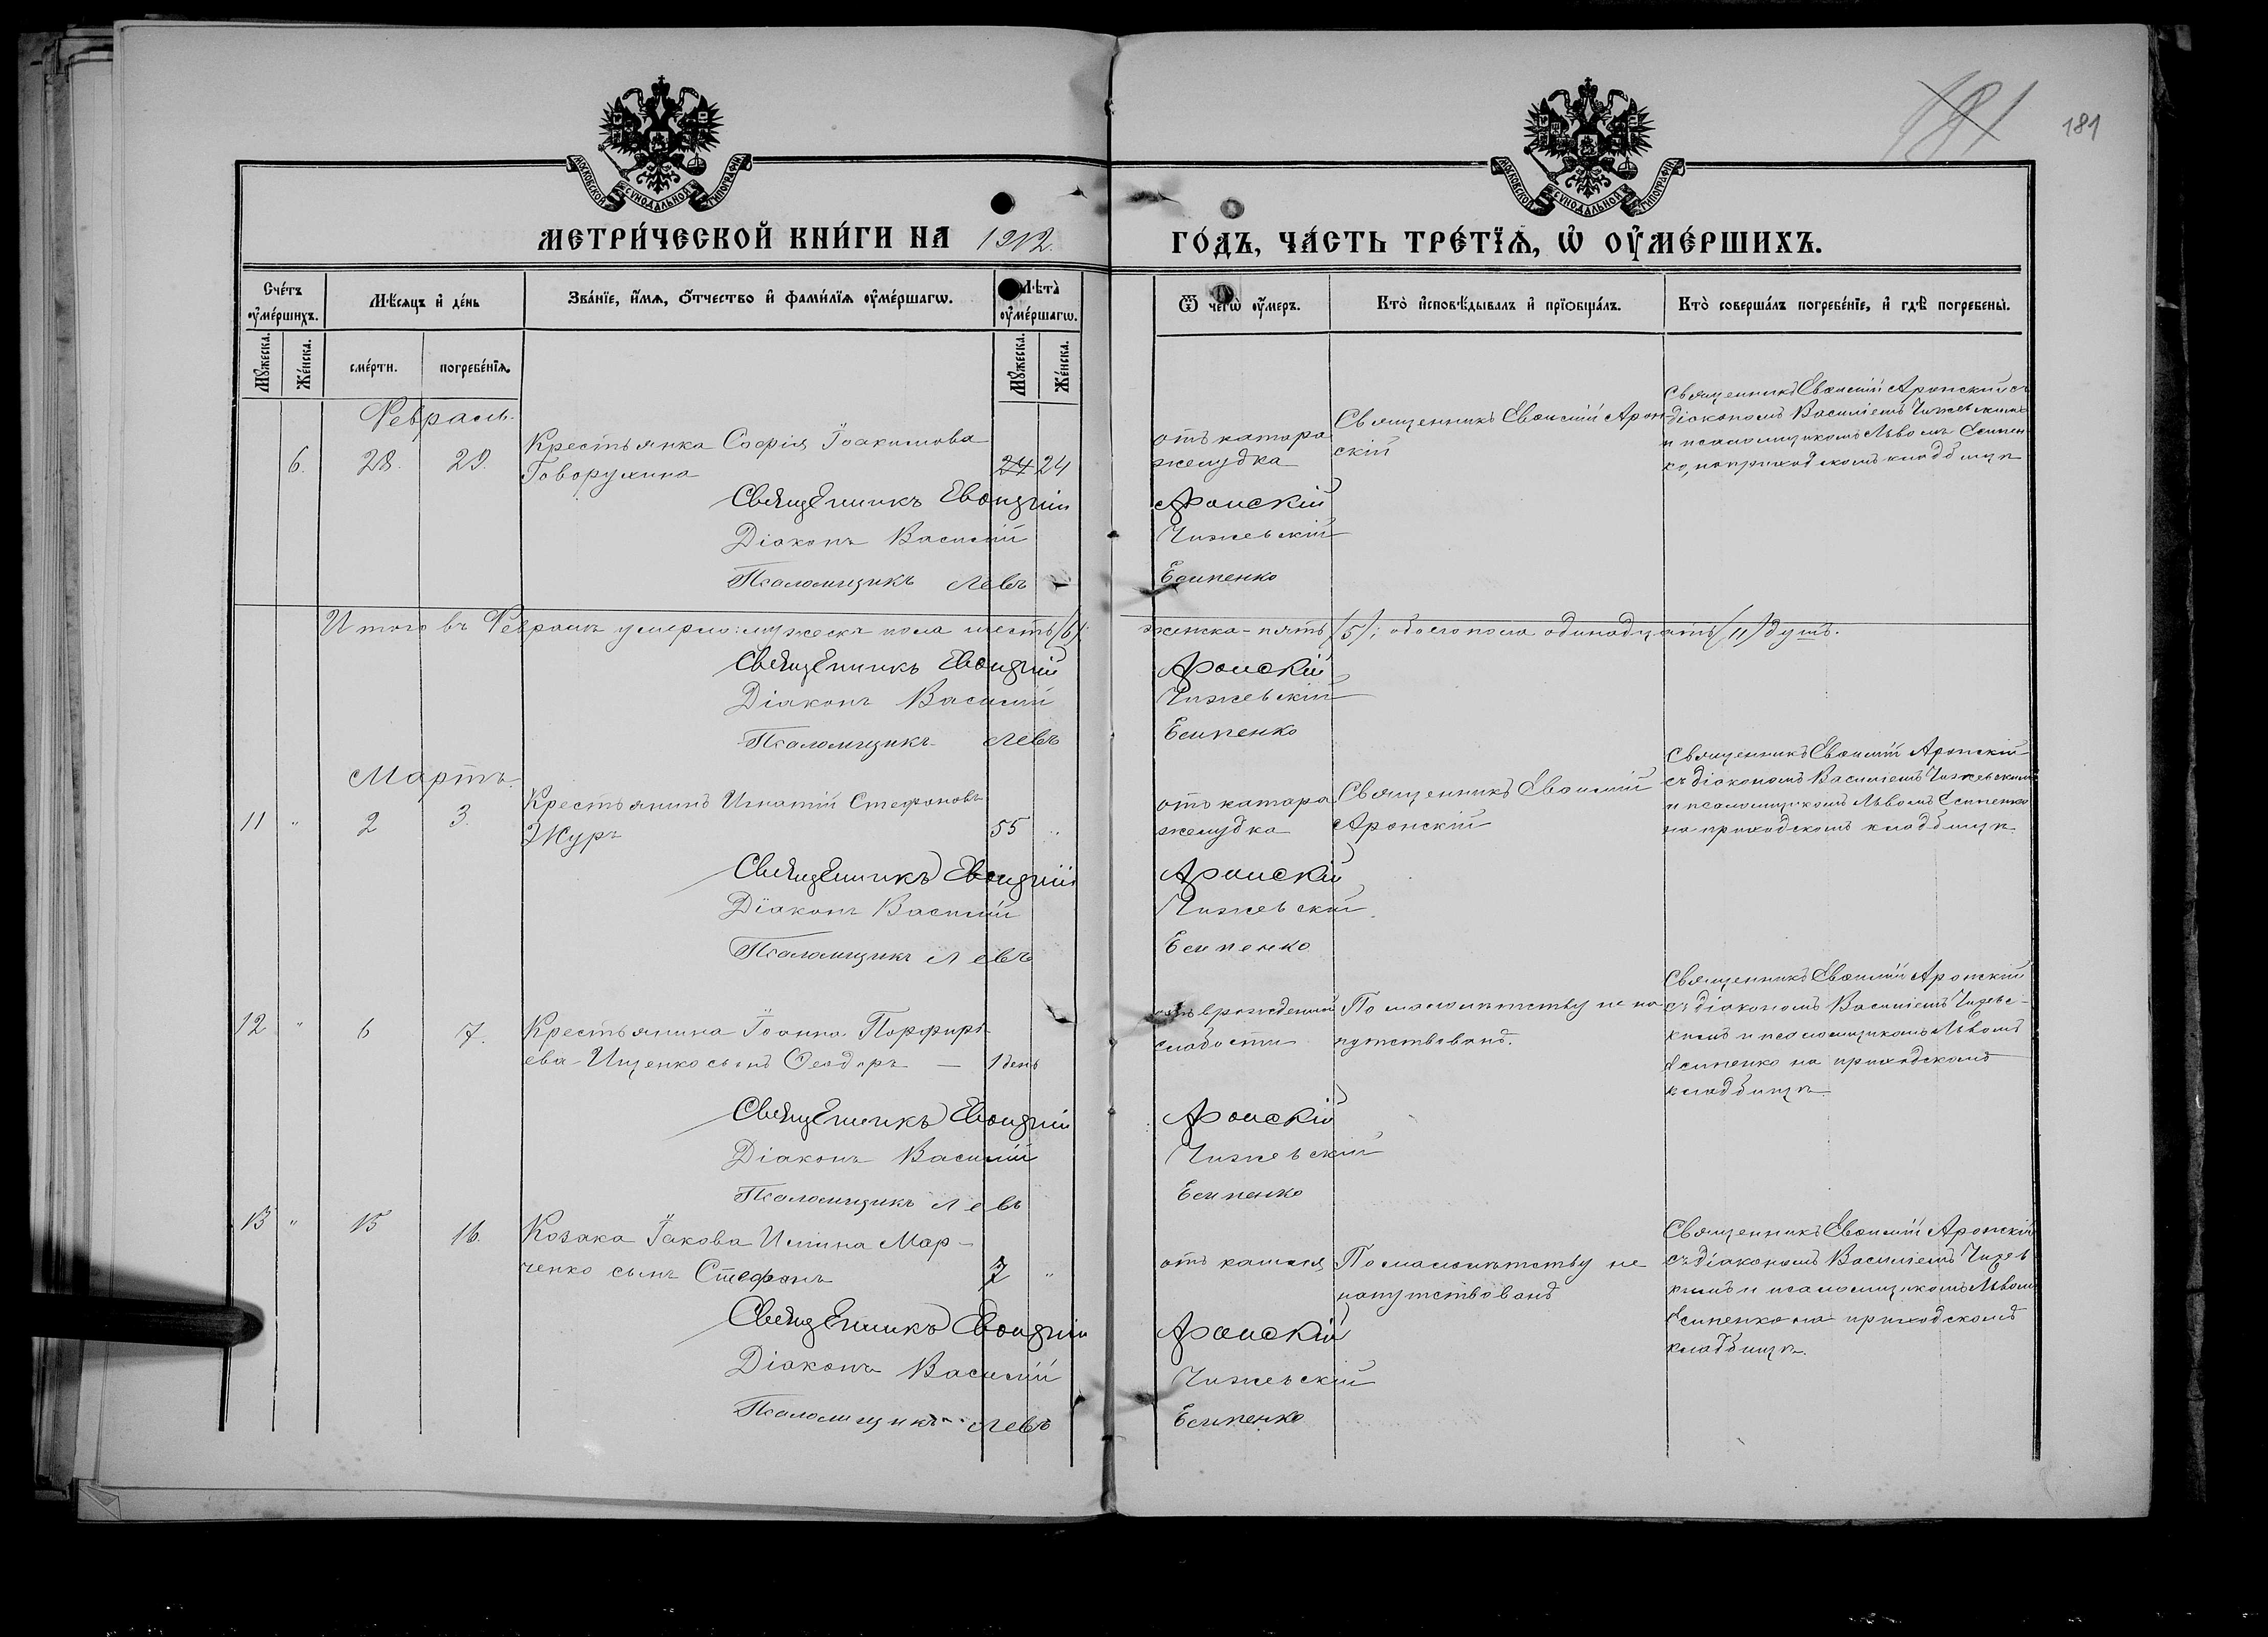 181
181
МОСКОВСКОЙ СѴНОДАЛЬНОЙ ТИПОГРАФІИ
МОСКОВСКОЙ СѴНОДАЛЬНОЙ ТИПОГРАФІИ
МЕТРИ́ЧЕСКОЙ КНИ́ГИ НА 1912.
ГО́ДЪ, ЧА́СТЬ ТРЕ́ТЇѦ, Ѡ҆ ОУ҆МЕ́РШИХЪ.
Сче́тъ оу҆ме́ршихъ.
Мѣ́сяцъ и҆ де́нь
Зва́нїе, и҆́мѧ, ѻ҆́тчество и҆ фами́лїѧ оу҆ме́ршагѡ.
Лѣ́та̀ оу҆ме́ршагѡ.
Ѿ чегѡ̀ оу҆́меръ.
Кто̀ и҆сповѣ́дывалъ и҆ прїѻбща́лъ.
Кто̀ соверша́лъ погребе́нїе, и҆ гдѣ̀ погребены̀.
Мꙋ́жеска.
Же́нска.
сме́рти.
погребе́нїѧ.
Мꙋ́жеска.
Же́нска.
Февраль.
6. 28. 29.
Крестьянка Софія Іоакимова
Говорухина
24 24
отъ катара
желудка
Священникъ Евѳимій Арон-
скій
Священникъ Евѳимій Аронскій съ
діакономъ Василіемъ Чижевскимъ
и псаломщикомъ Львомъ Есипен
ко, на приходскомъ кладбищѣ
Священникъ Евѳимій Аронскій
Діаконъ Василій Чижевскій
Псаломщикъ Левъ Есипенко
Итого въ Февралѣ умерло: мужеск. пола шесть /6/; женска - пять /5/; обоего пола одинадцать /11/ душъ.
Священникъ Евѳимій Аронскій
Діаконъ Василій Чижевскій
Псаломщикъ Левъ Есипенко
Мартъ.
11 " 2 3.
Крестьянинъ Игнатій Стефановъ
Журъ
55 "
отъ катара
желудка
Священникъ Евѳимій
Аронскій
Священникъ Евѳимій Аронскій
съ діакономъ Василіемъ Чижевскимъ
и псаломщикомъ Львомъ Есипенко
на приходскомъ кладбищѣ.
Священникъ Евѳимій Аронскій
Діаконъ Василій Чижевскій
Псаломщикъ Левъ Есипенко
12 " 6 7.
Крестьянина Іоанна Порфирі-
ева Ищенко сынъ Ѳеодоръ — 1 день
отъ врожденной
слабости
По малолѣтству не на-
путствованъ.
Священникъ Евѳимій Аронскій
съ діакономъ Василіемъ Чижевс-
кимъ и псаломщикомъ Львомъ
Есипенко на приходскомъ
кладбищѣ.
Священникъ Евѳимій Аронскій
Діаконъ Василій Чижевскій
Псаломщикъ Левъ Есипенко
13 " 15 16.
Козака Іакова Иліина Мар-
ченко сынъ Стефанъ
"
отъ кашля
По малолѣтству не
напутствованъ
Священникъ Евѳимій Аронскій
съ діакономъ Василіемъ Чижев
кимъ и псаломщикомъ Львомъ
Есипенко на приходскомъ
кладбищѣ.
Священникъ Евѳимій Аронскій
Діаконъ Василій Чижевскій
Псаломщикъ Левъ Есипенко